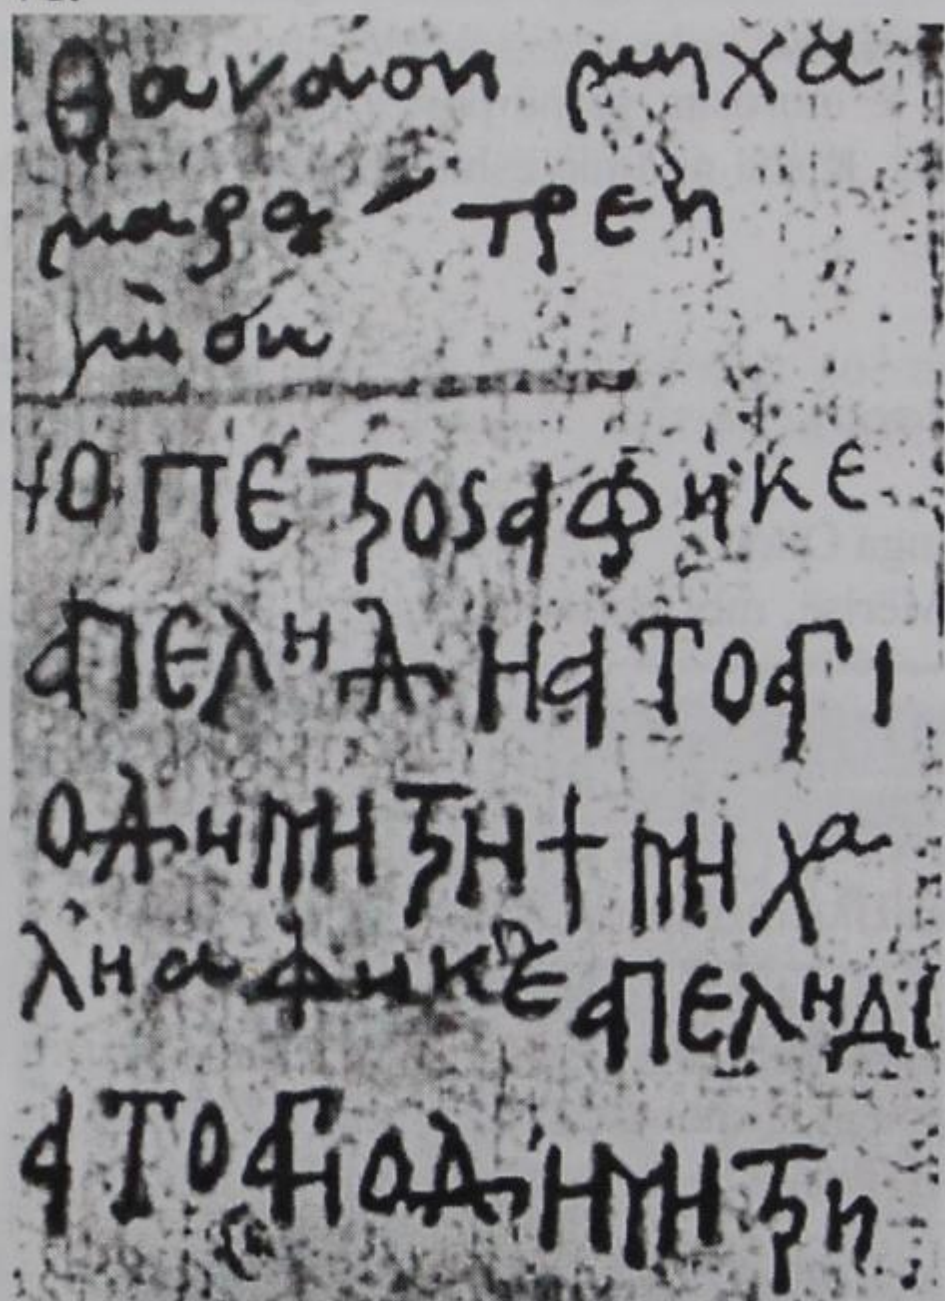 θανάση μηχα
μαρα τρεη
μηση
+ΟΠΕΤρΟSαΦΗΚΕ
αΠΕΛΗΔΗαΤΟαΓΙ
ΟΔΗΜΗΤρΗ+ΜΗΧα
ΛΗαΦΗΚΕαΠΕΛΗΔΙ
αΤΟαΓΙΟΔΗΜΗΤρΗ